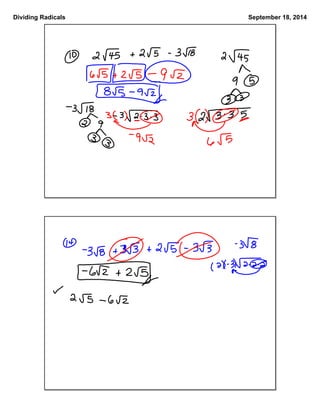 Dividing Radicals September 18, 2014
10 2√45 + 2√5 - 3√18 2√45
6√5 + 2√5 - 9√2 9 5
8√5 - 9√2 3 3
-3√18 3(-3)√2·3·3 3(2)√3·3·5
2 9 -9√2 6√5
3 3
-3√8 + 3√3 + 2√5 - 3√3 -3√8
-6√2 + 2√5 (2)(-3)√2·2·2
✓ 2√5 - 6√2